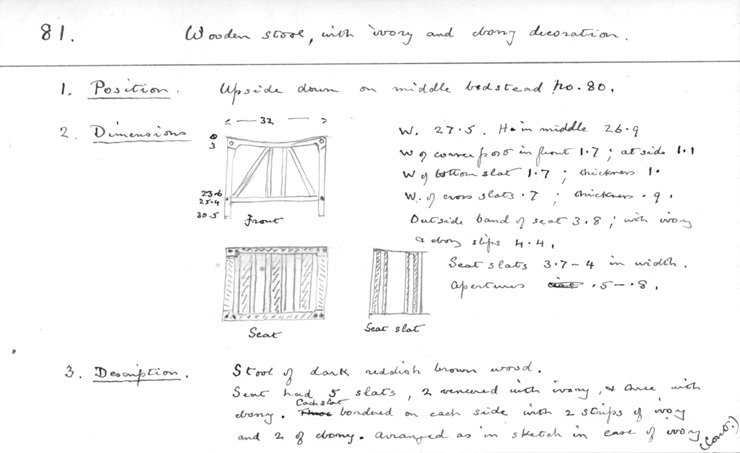 81. Wooden stool, with ivory and ebony decoration.
1. Position. Upside down on middle bedstead No. 80.
2. Dimensions
32
W. 27.5. H. in middle 26.9
0
3
W of corner post in front 1.7; at side 1.1
W of bottom slat 1.7; thickness 1.
23.6
W. of cross slats .7; thickness .9.
25.4
30.5
Front
Outside band of seat 3.8; with ivory
& ebony slips 4.4.
Seat slats 3.7-4 in width.
Apertures .5-.8.
Seat
Seat slat
3. Description. Stool of dark reddish brown wood.
Seat had 5 slats, 2 veneered with ivory, & three with
Each slat
ebony. These bordered on each side with 2 strips of ivory
and 2 of ebony. arranged as in sketch in case of ivory
(Cont.)